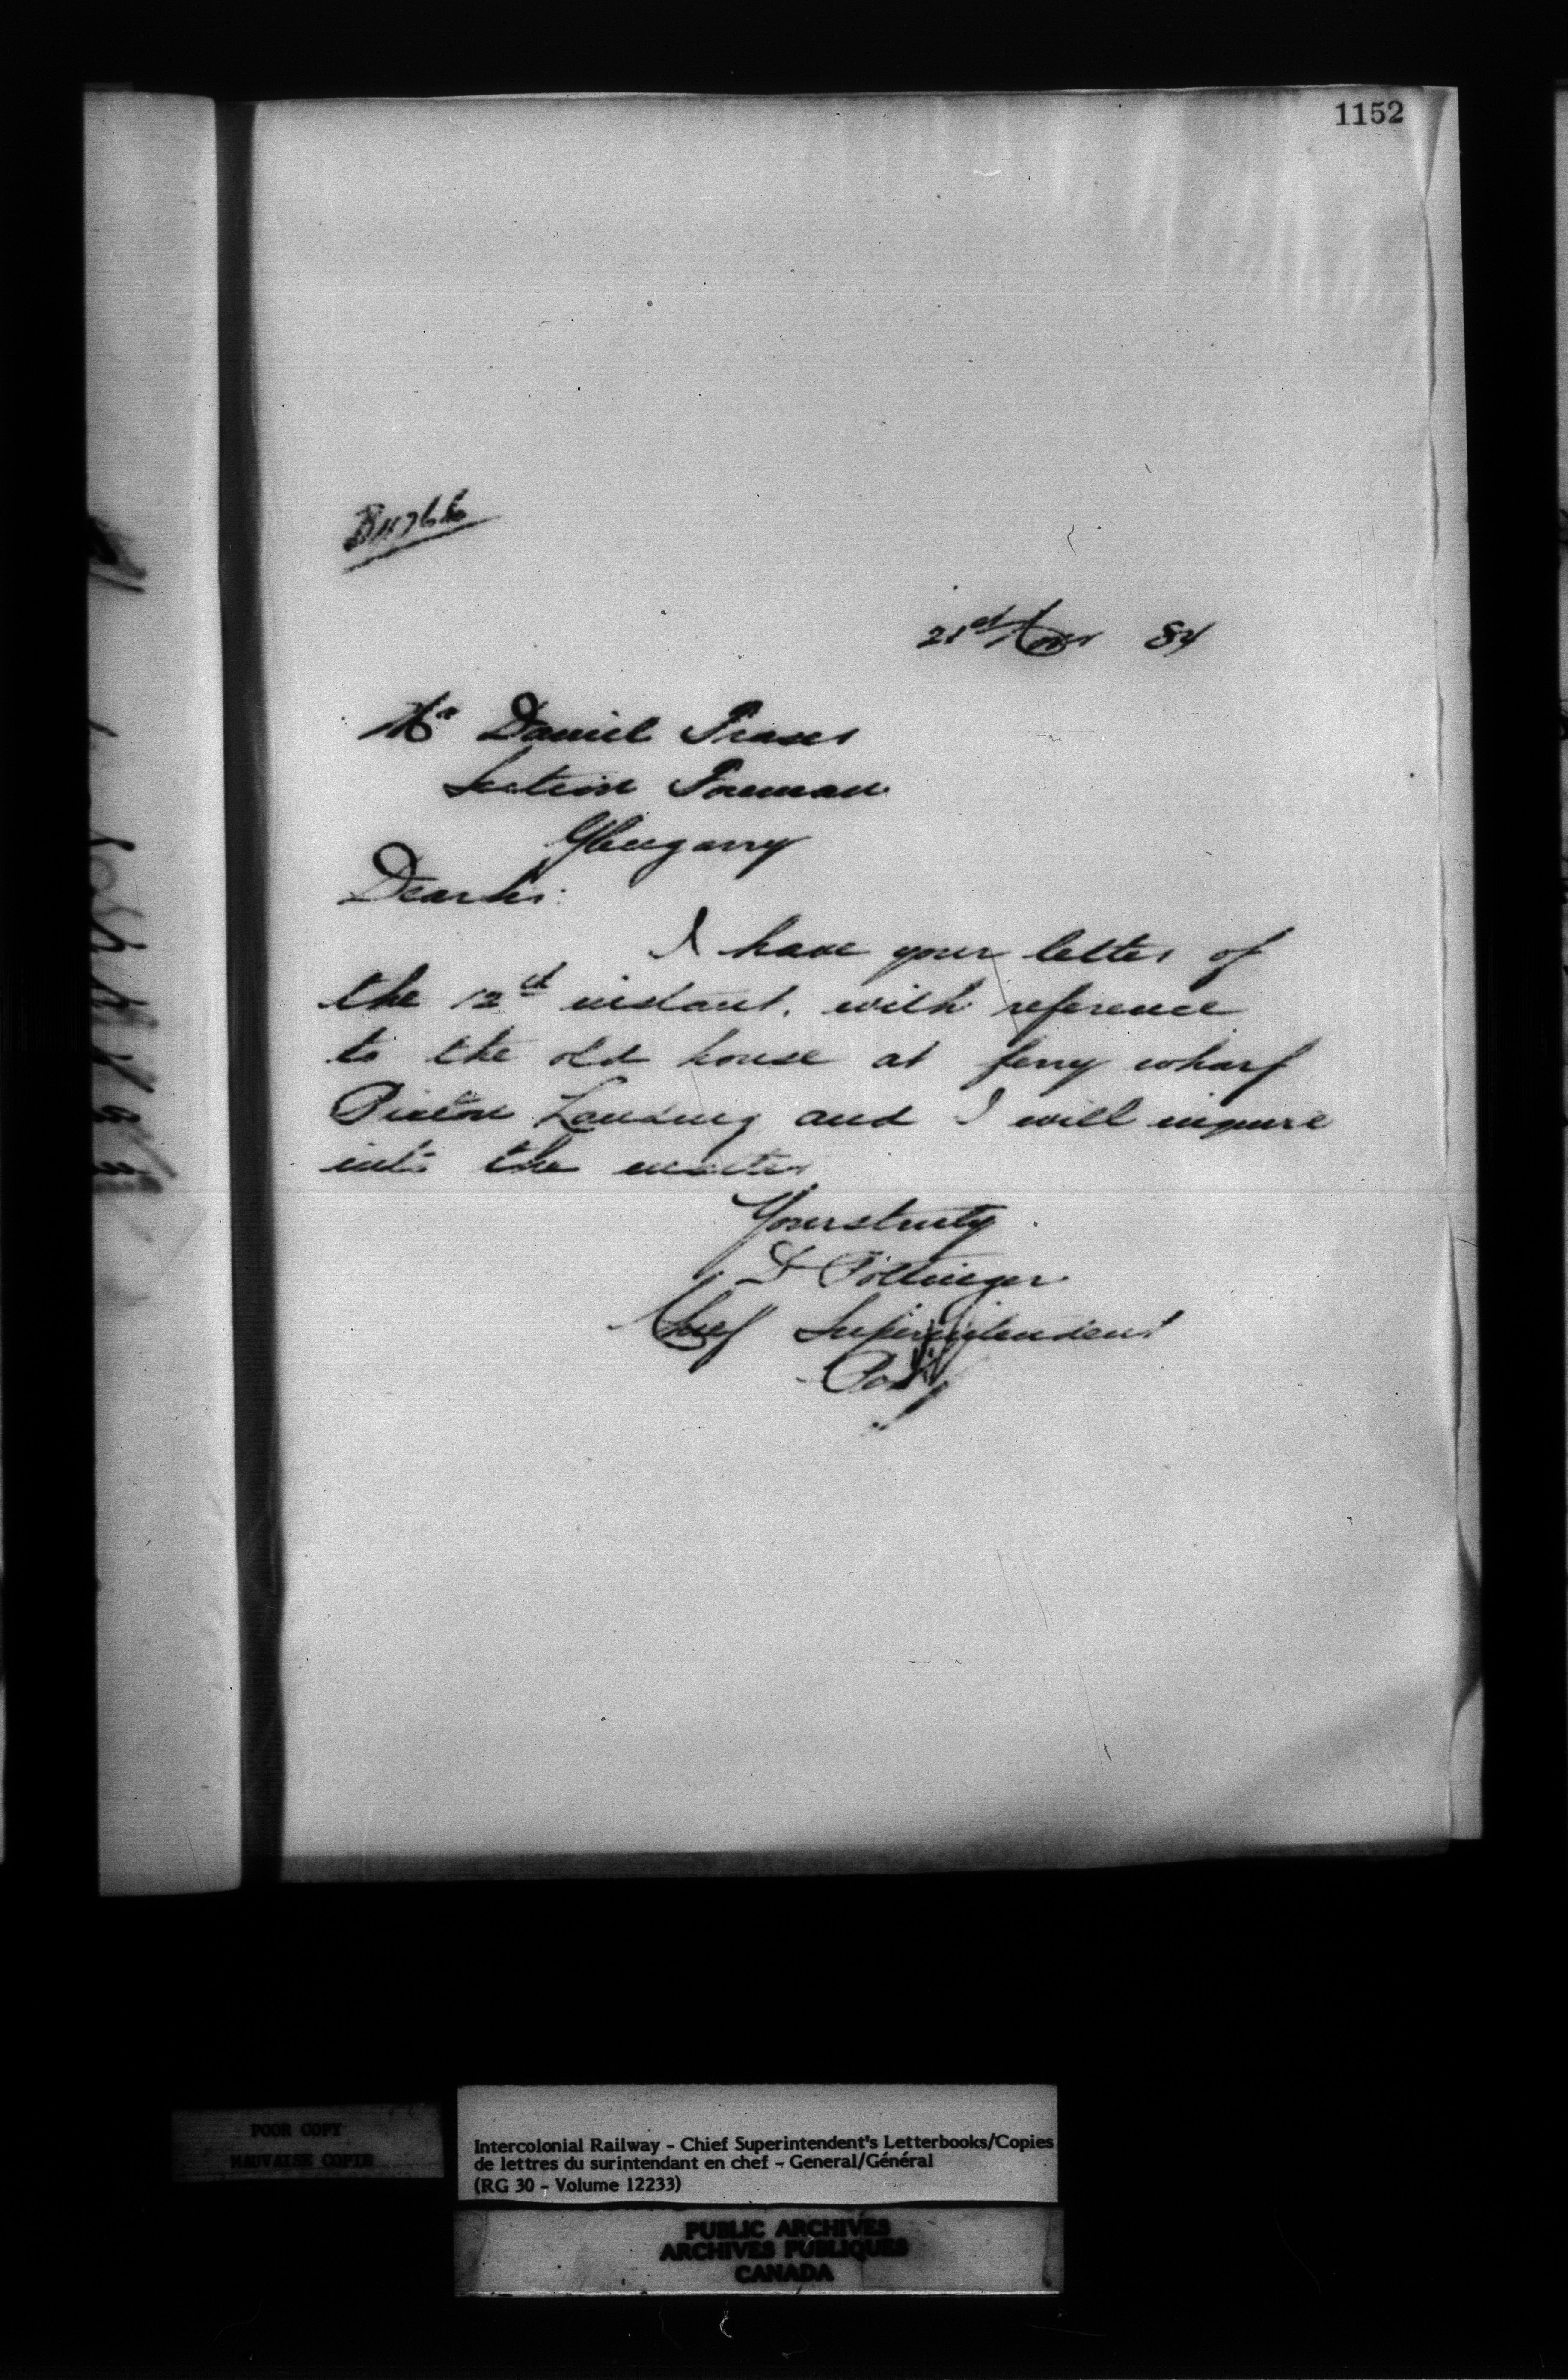 1152
21st Nov 84
Mr Daniel Fraser
Section Foreman
Glengarry
Dear Sir:
I have your letter of
the 12th instant, with reference
to the old house at ferry wharf
Pictou Landing and I will inquire
into the matter
Yours truly
D Pottinger
Chief Superintendent
POOR COPY
MAUVAISE COPIE
Intercolonial Railway - Chief Superintendent's Letterbooks/Copies
de lettres du surintendant en chef - General/Général
(RG 30 - Volume 12233)
PUBLIC ARCHIVES
ARCHIVES PUBLIQUES
CANADA